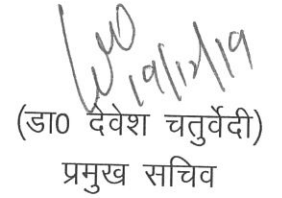 19/12/19
(डा0 देवेश चतुर्वेदी)
प्रमुख सचिव